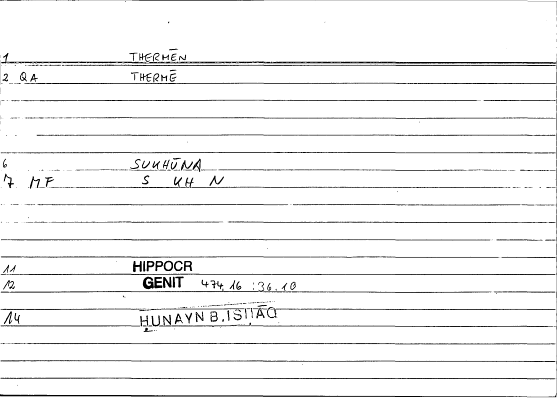 1 THERMĒN
2 QA THERMĒ
6 SUKHŪNA
7 MF S KH N
11 HIPPOCR
12 GENIT 474,16 :36.10
14 ḤUNAYN B.ISḤĀQ